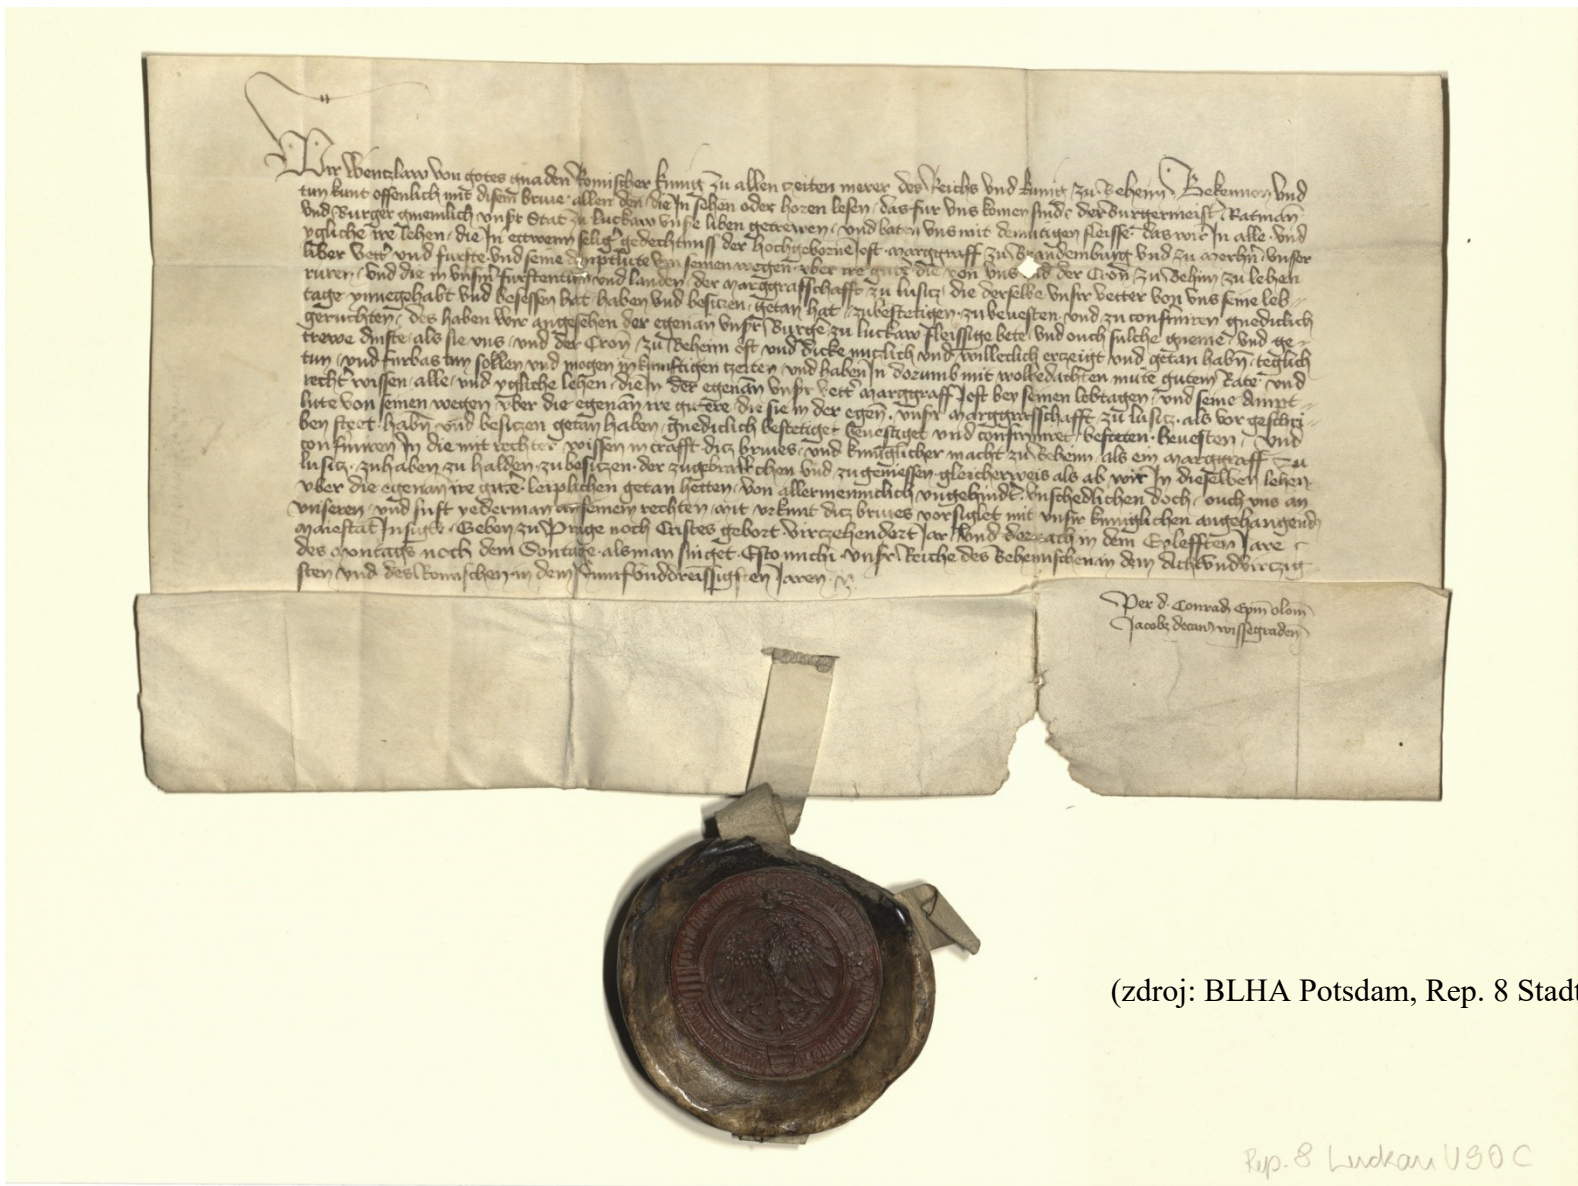 Wir Wenczlaw von gotes gnaden Romischer kunig zu allen czeiten merer des Reichs und kunig zu Beheim Bekennen und
tun kunt offenlich mit disem brive allen den die In sehen oder horen lesen, das fur uns komen sind der Burgermeister Ratman
und Burger gmeinlich unser Stat zu luckaw unser liben getrewen, und baten uns mit demutigen fleisse das wir In alle und
ygliche ire lehen, die In ettwenn selig gedechtniss der hochgeborne Jost Marggraff zu Brandemburg und zu Merhn unser
liber vetter und furste und seine amptlute von seinen wegen uber ire guter die von uns und der Cron zu Behim zu lehen
ruren, und die in unserm furstentum und landen der Marggraffschafft zu lusicz die derselbe unser vetter von uns seine leb-
tage ynnegehabt und besessen hat haben und besiczen getan hat zubestetigen zu bevesten und zu confirmiren gnediclich
geruchten, des haben wir angesehen der egenan unser Burger zu luckaw fleissige bete und ouch sulche gneme und ge-
trewe dinste als sie uns und der Cron zu Beheim oft und dicke nuczlich und willeclich erczeigt und getan habn teglich
tun und furbas tun sollen und mogen in kunftigen czeiten und haben In dorumb mit wolbedachtem mute gutem Rate und
rechter wissen alle und ygliche lehen die In der egenan unser vetter Marggraff Jost bey seinen lebtagen und seine Ampt-
lute von seinen wegen uber die egenan ire gutere die sie in der egen unser Marggraffschafft zu lusicz als vor geschri-
ben steet habn und besiczen getan haben gnediclich bestetiget Gevestiget und confirmiret besteten bevesten und
confirmiren In die mit rechter wissen in crafft dicz brives und kuniglicher macht zu Beheim als ein Marggraff zu
lusicz zuhaben zu halden zu besiczen der zugebrauchen und zugeniessen gleicherweis als ab wir In dieselben lehen
uber die egenan ire guter leiplichen getan hetten von allermenniclich ungehindert unschedlichen doch ouch uns an
unseren und sust yederman an seinem rechten Mit urkunt dicz brives vorsiglet mit unser kuniglichen angehangendn
Maiestat Insigel Geben zu Prage noch Cristes gebort virczehendert Jar und dornach in dem Eylefften Jare
des Montags noch dem Sontage als man singet Esto michi unser Reiche des Behemischen in dem Achtundvirczig-
sten und des Romischen in dem funfunddreissigsten Jaren
Per d. Conrad Epm olom
Jacobus decanus wissegraden
(zdroj: BLHA Potsdam, Rep. 8 Stadt
Rep. 8 Luckau U 90 C